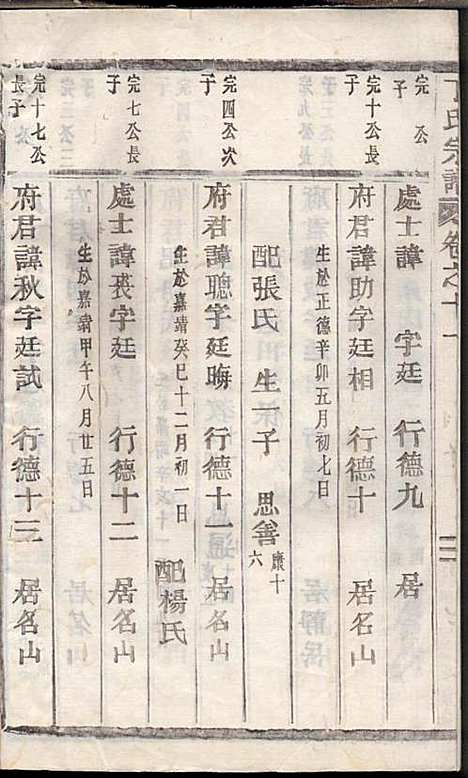 丁氏宗譜 卷之十一
完 公 子
處士諱 字廷 行德九 居
完十公長子
府君諱助字廷相 行德十 居名山
生於正德辛卯五月初七日
配張氏 生一子 思善 康十六
完四公次子
府君諱聰字廷晦 行德十一 居名山
生於嘉靖癸巳十二月初一日 配楊氏
完七公長子
處士諱 字廷 行德十二 居名山
生於嘉靖甲午八月廿五日
完十七公長子
府君諱秋字廷試 行德十三 居名山